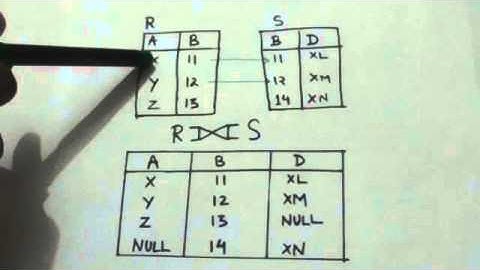 R S
A B B D
X 11 11 XL
Y 12 12 XM
Z 13 14 XN
R ⟗ S
A B D
X 11 XL
Y 12 XM
Z 13 NULL
NULL 14 XN